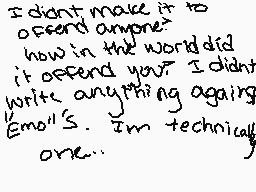 I didnt make it to
offend anyone?
how in the world did
it offend you? I didnt
write anything agains
"Emo"'s. Im technically
one...